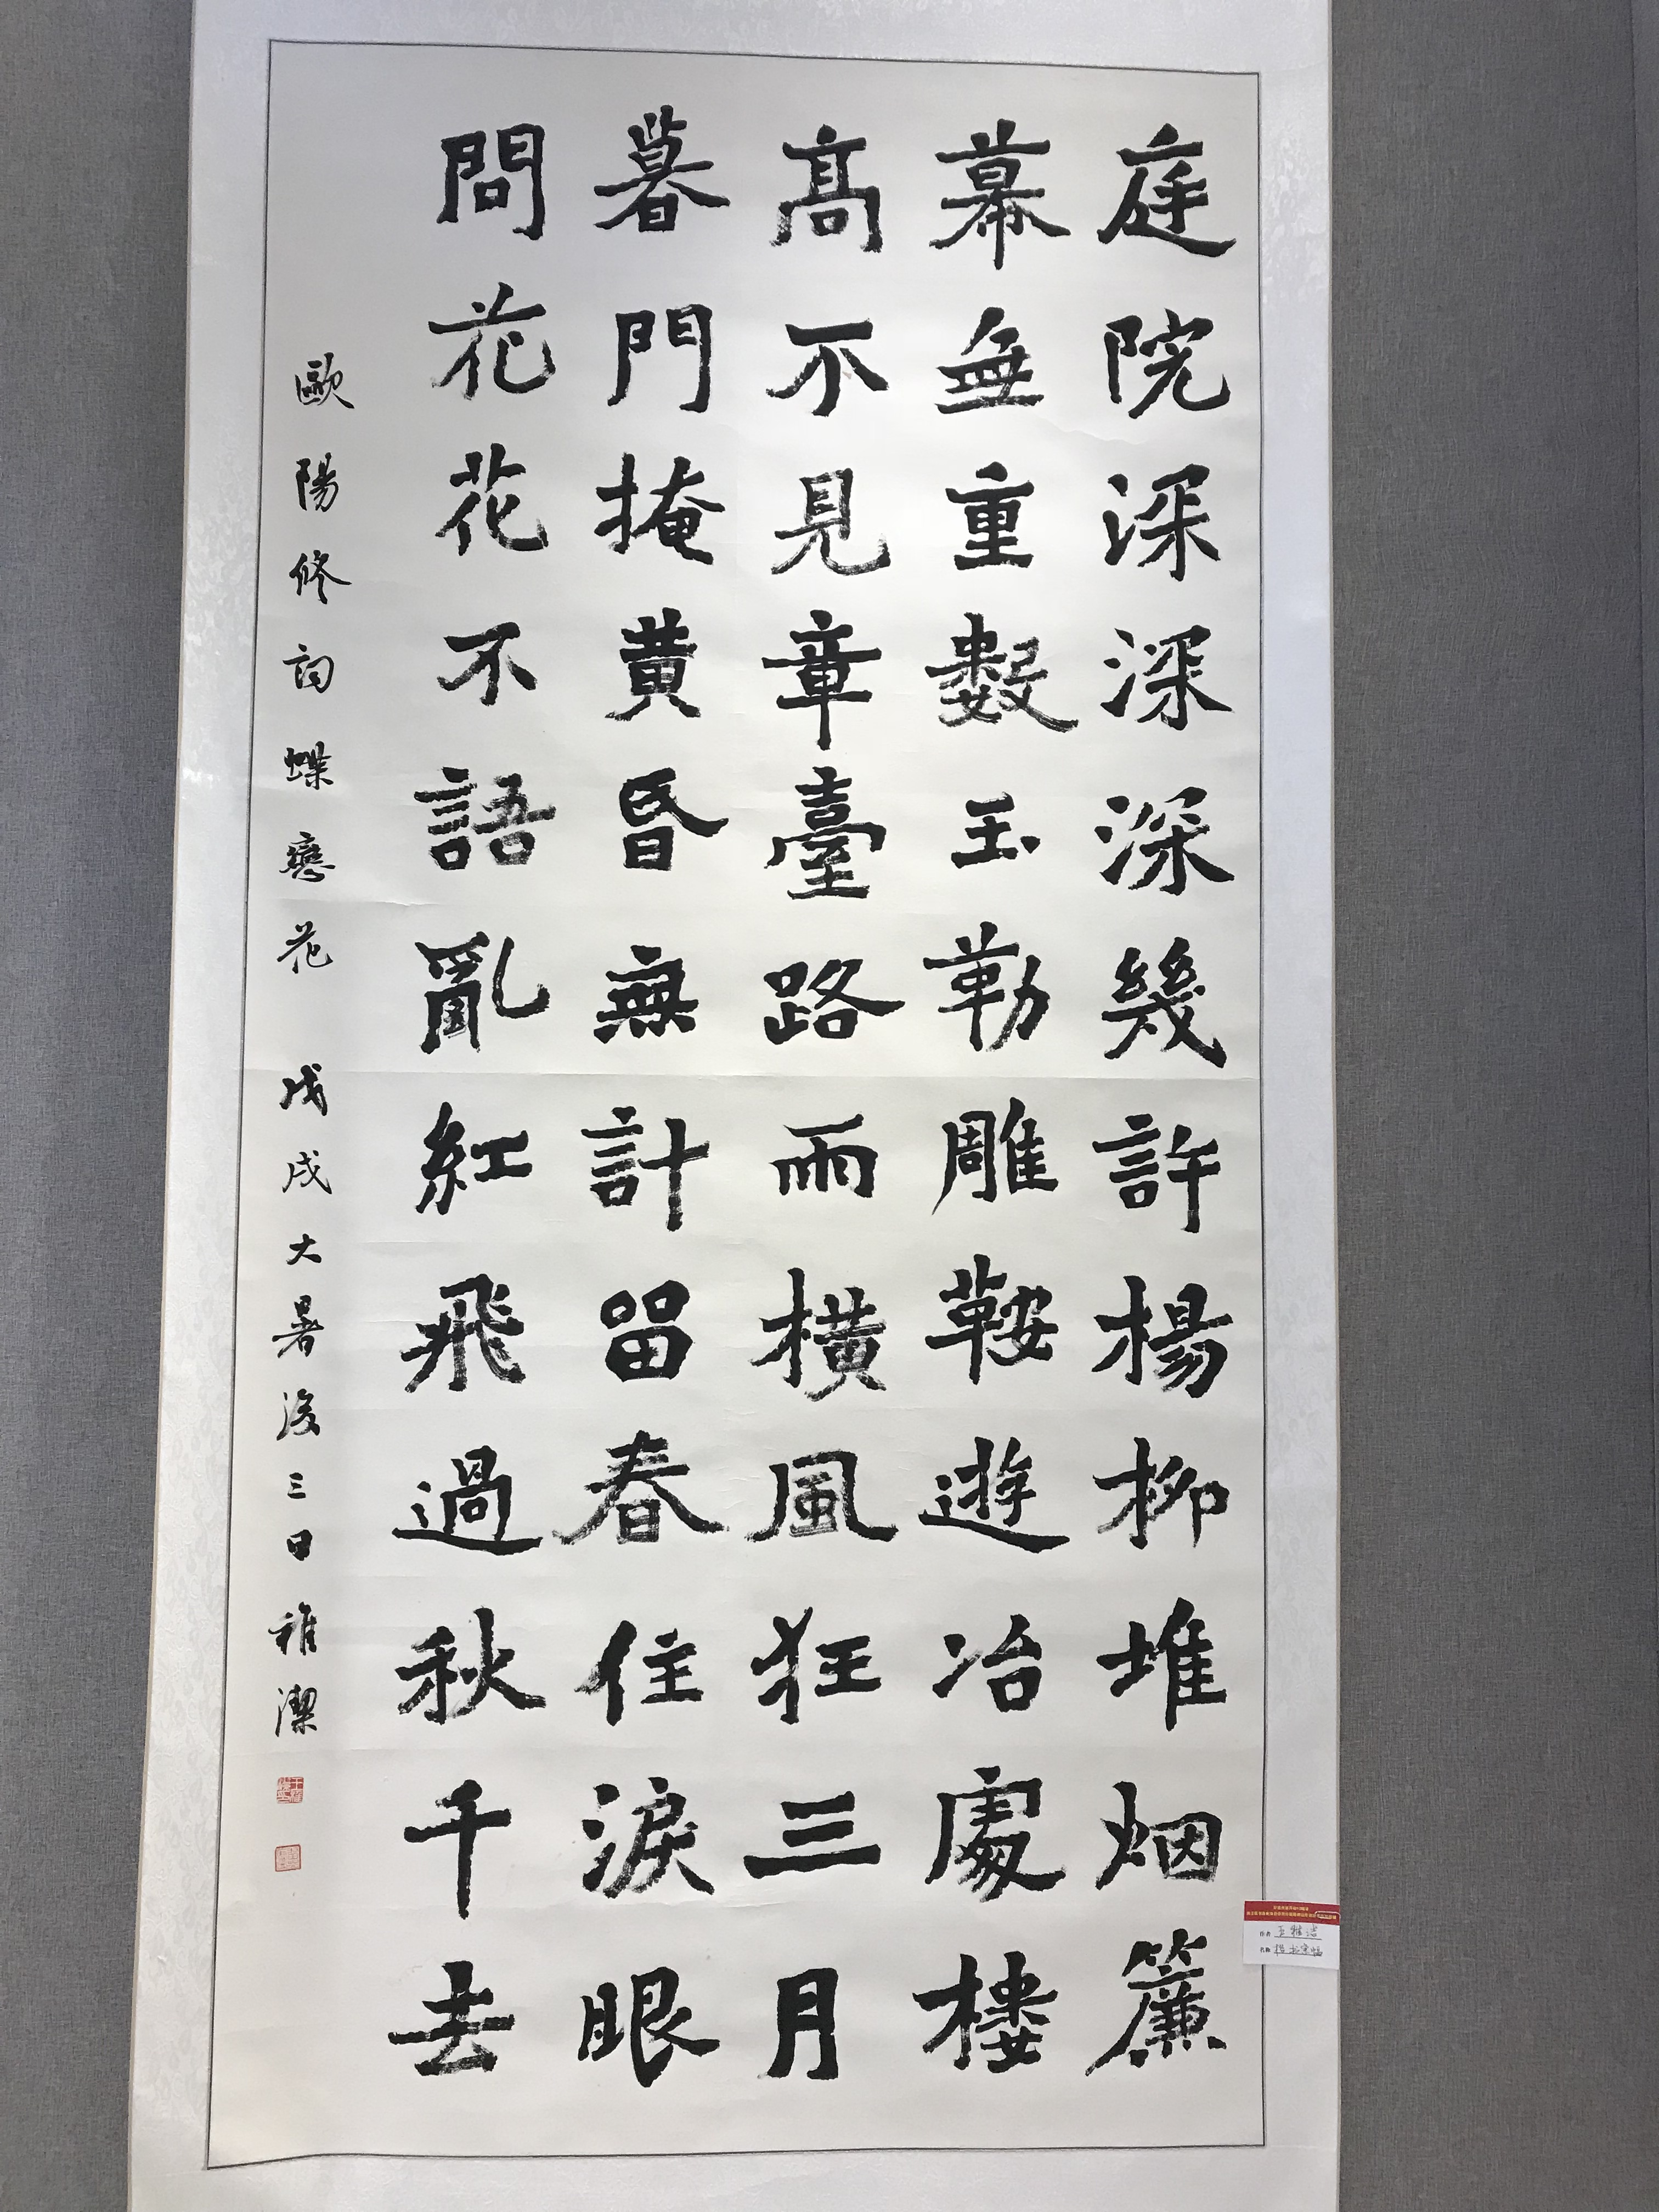 庭院深深深幾許楊柳堆烟簾
幕無重數玉勒雕鞍遊冶處樓
髙不見章臺路雨橫風狂三月
暮門掩黄昏無計留春住淚眼
問花花不語亂紅飛過秋千去
歐陽修詞蝶戀花 戊戌大暑後三日 雅潔
王雅洁